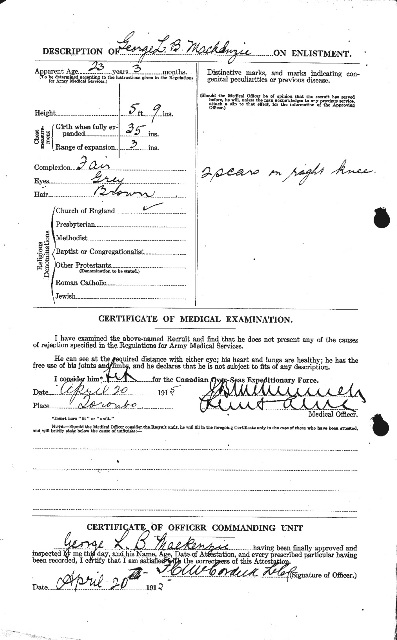 DESCRIPTION OF George L. B. Mackenzie ON ENLISTMENT.
Apparent Age 23 years 3 months.
(To be determined according to the instructions given in the Regulations for Army Medical Services.)
Distinctive marks, and marks indicating congenital peculiarities or previous disease.
(Should the Medical Officer be of opinion that the recruit has served before, he will, unless the man acknowledges to any previous service, attach a slip to that effect, for the information of the Approving Officer.)
Height 5 ft. 9 ins.
Chest measurement
Girth when fully expanded 35 ins.
Range of expansion 3 ins.
Complexion Fair
Eyes Grey
Hair Brown
2 scars on right knee
Religious Denominations
Church of England ✓
Presbyterian
Methodist
Baptist or Congregationalist
Other Protestants
(Denomination to be stated.)
Roman Catholic
Jewish
CERTIFICATE OF MEDICAL EXAMINATION.
I have examined the above-named Recruit and find that he does not present any of the causes
of rejection specified in the Regulations for Army Medical Services.
He can see at the required distance with either eye; his heart and lungs are healthy; he has the
free use of his joints and limbs, and he declares that he is not subject to fits of any description.
I consider him* fit for the Canadian Over-Seas Expeditionary Force.
Date April 20 1915
Place Toronto
Medical Officer.
*Insert here "fit" or "unfit."
NOTE.—Should the Medical Officer consider the Recruit unfit, he will fill in the foregoing Certificate only in the case of those who have been attested, and will briefly state below the cause of unfitness:—
CERTIFICATE OF OFFICER COMMANDING UNIT
George L B Mackenzie having been finally approved and
inspected by me this day, and his Name, Age, Date of Attestation, and every prescribed particular having
been recorded, I certify that I am satisfied with the correctness of this Attestation.
(Signature of Officer.)
Date April 20th 1915